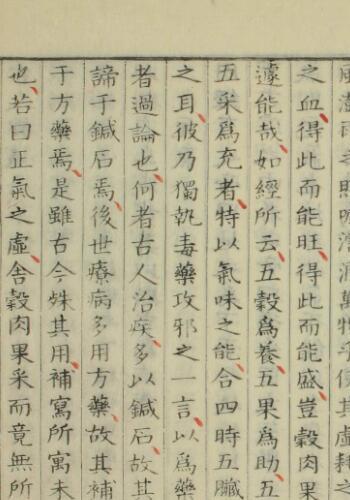 風澍雨之
之血得此而能旺得此而能盛豈穀肉果
遽能哉如經所云五穀為養五果為助五
五采爲充者特以氣味之能合四時五臟
之耳彼乃獨執毒藥攻邪之一言以為藥
者過論也何者古人治疾多以鍼石故其
諦于鍼石焉後世療病多用方藥故其補
于方藥焉是雖古今殊其用補寫所寓未
也若曰正氣之虛舍穀肉果采而竟無所